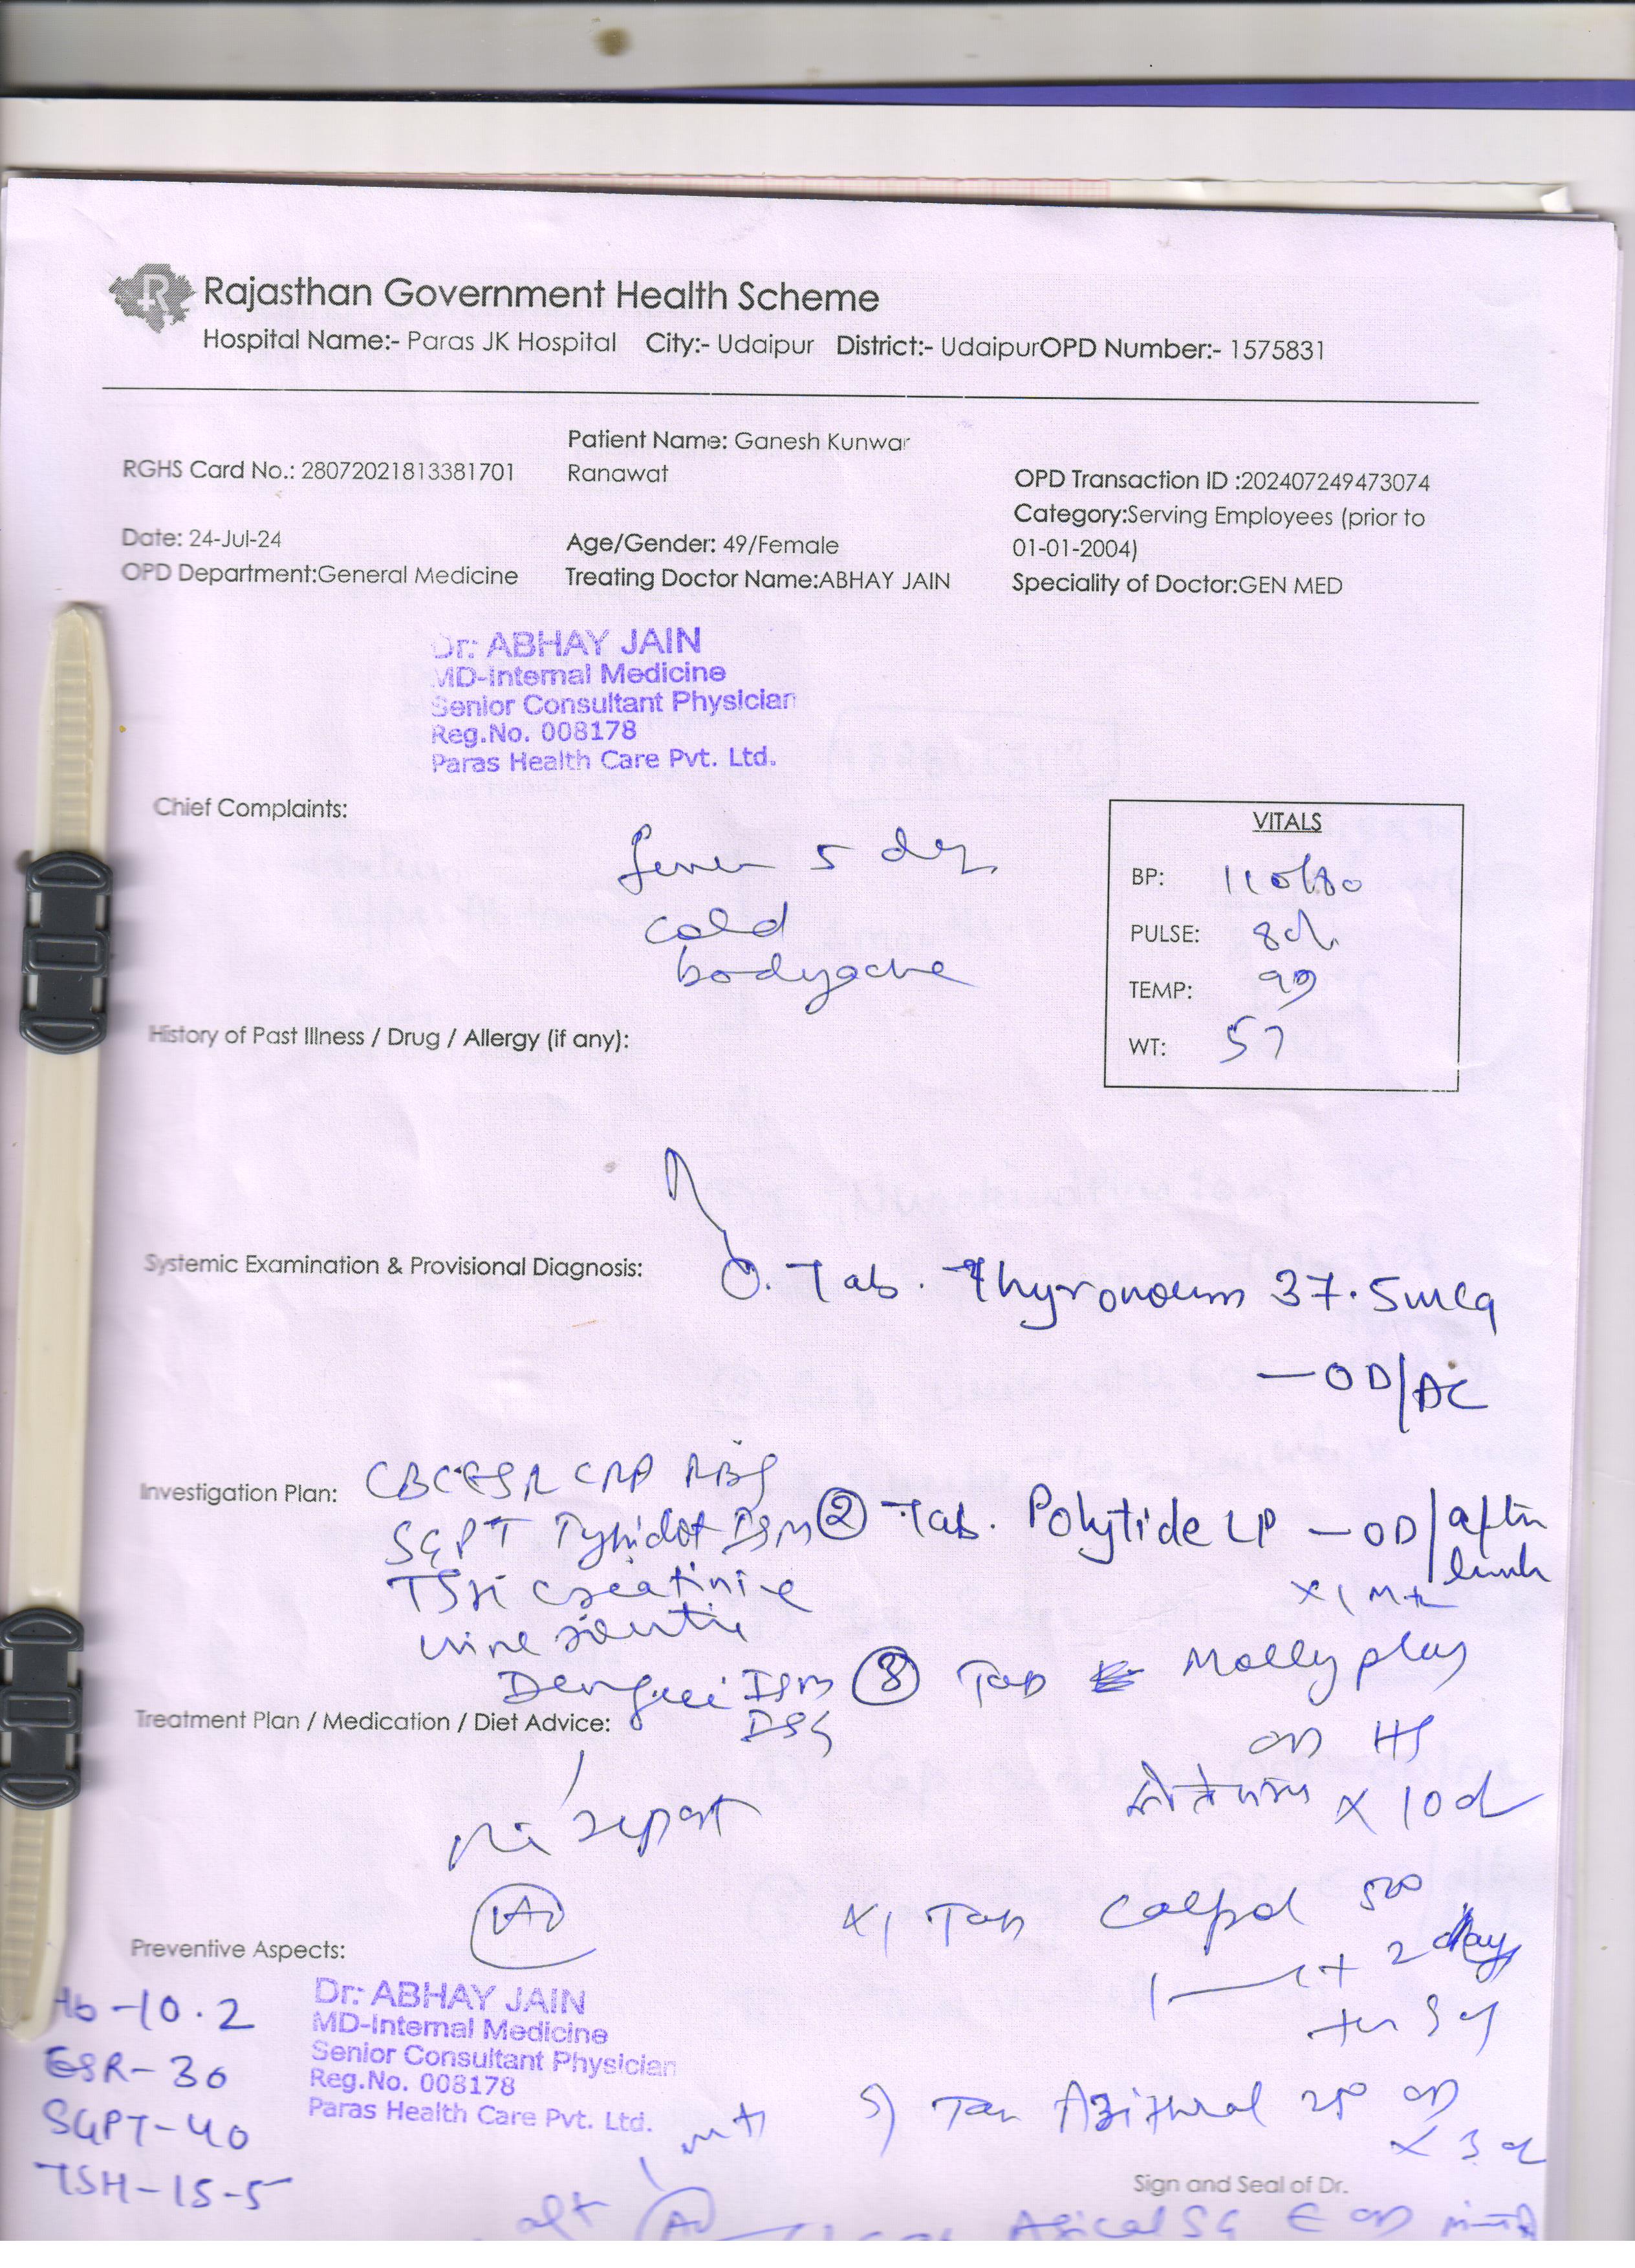 Rajasthan Government Health Scheme
Hospital Name:- Paras JK Hospital City:- Udaipur District:- UdaipurOPD Number:- 1575831
RGHS Card No.: 28072021813381701
Patient Name: Ganesh Kunwar
Ranawat
OPD Transaction ID :202407249473074
Category:Serving Employees (prior to
01-01-2004)
Date: 24-Jul-24
Age/Gender: 49/Female
OPD Department:General Medicine
Treating Doctor Name:ABHAY JAIN
Speciality of Doctor:GEN MED
Dr. ABHAY JAIN
MD-Internal Medicine
Senior Consultant Physician
Reg.No. 008178
Paras Health Care Pvt. Ltd.
Chief Complaints:
fever 5 day
cold
bodyache
VITALS
BP: 110/80
PULSE: 80/
TEMP: 99
WT: 57
History of Past Illness / Drug / Allergy (if any):
Systemic Examination & Provisional Diagnosis:
①. Tab. Thyronorm 37.5mcg
— OD/AC
Investigation Plan:
CBC ESR CRP RBS
SGPT Typhidot IgM
TSH creatinine
urine routine
Dengue IgM
IgG
② Tab. Polytide LP — OD/after lunch
③ Tab Molly plus
HS
x 10d
Treatment Plan / Medication / Diet Advice:
report
Tab Calpol 500
2 days
Preventive Aspects:
Hb-10.2
ESR-30
SGPT-40
TSH-15.5
Dr. ABHAY JAIN
MD-Internal Medicine
Senior Consultant Physician
Reg.No. 008178
Paras Health Care Pvt. Ltd.
5) Tab Azithral 250 OD
x 3d
Sign and Seal of Dr.